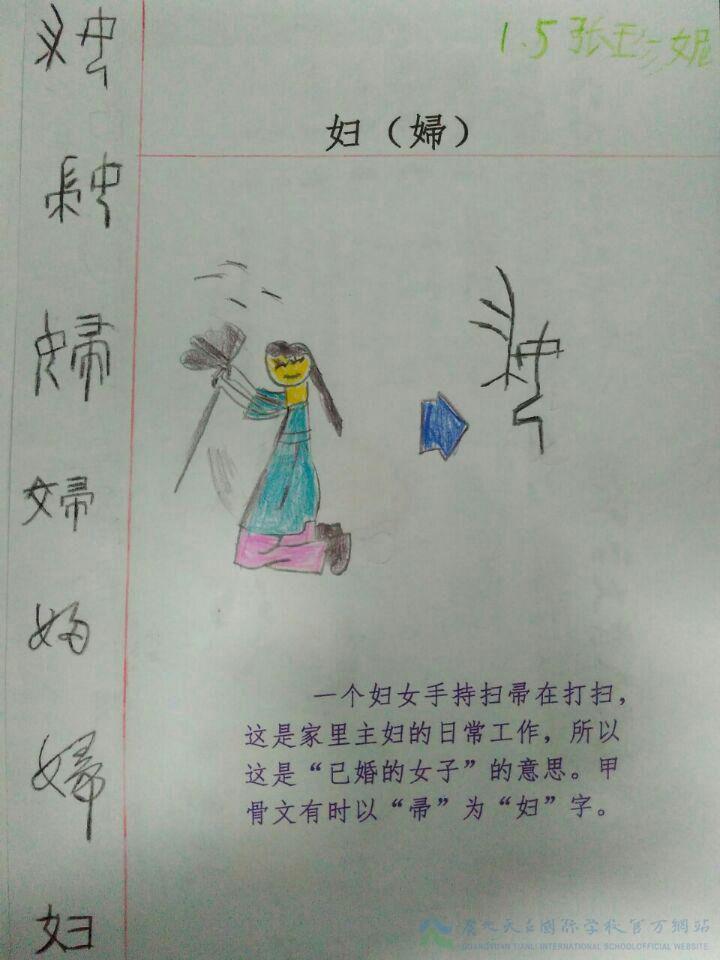 1.5 张珍妮
妇（婦）
婦
婦
妇
一个妇女手持扫帚在打扫，
这是家里主妇的日常工作，所以
这是“已婚的女子”的意思。甲
骨文有时以“帚”为“妇”字。
广元天立国际学校官方網站
GUANGYUAN TIANLI INTERNATIONAL SCHOOLOFFICIAL WEBSITE